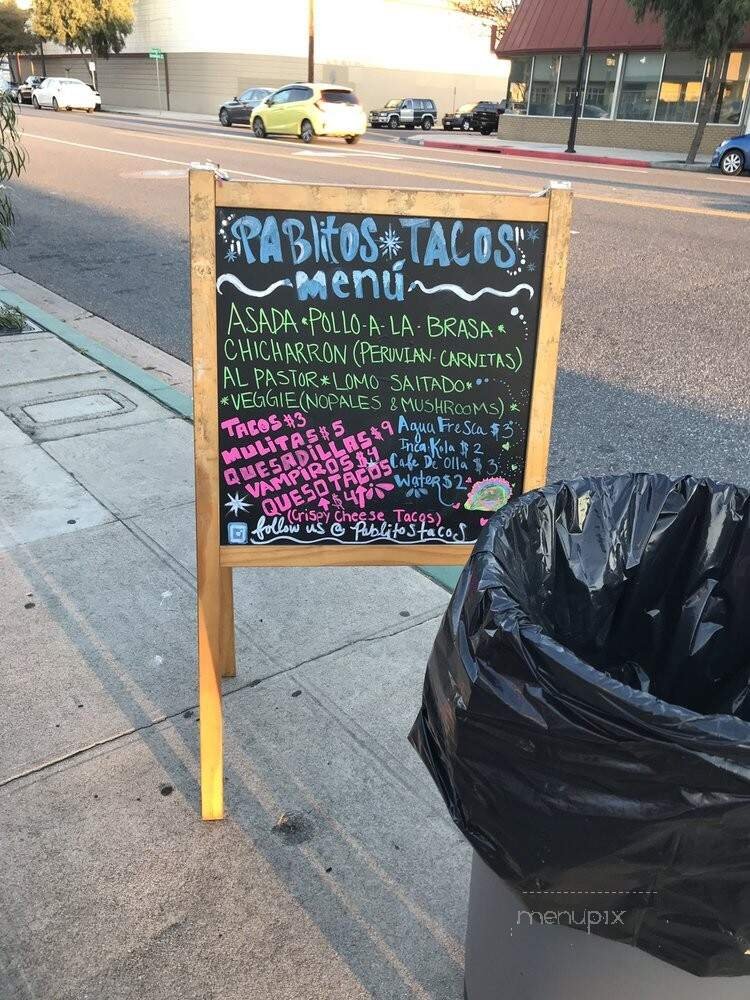 "PABlitOS * TACOS"
menú
ASADA • POLLO-A-LA-BRASA *
CHICHARRON (PERUVIAN-CARNITAS)
AL PASTOR * LOMO SALTADO *
* VEGGIE (NOPALES & MUSHROOMS) *
TACOS $3
MULITAS $5
QUESADILLAS $9
VAMPIROS $4
QUESOTACOS $4
(Crispy Cheese Tacos)
Agua FreSca $3
Inca-Kola $2
Cafe De Olla $3
Water $2
follow us @ Pablitostacos
menupix